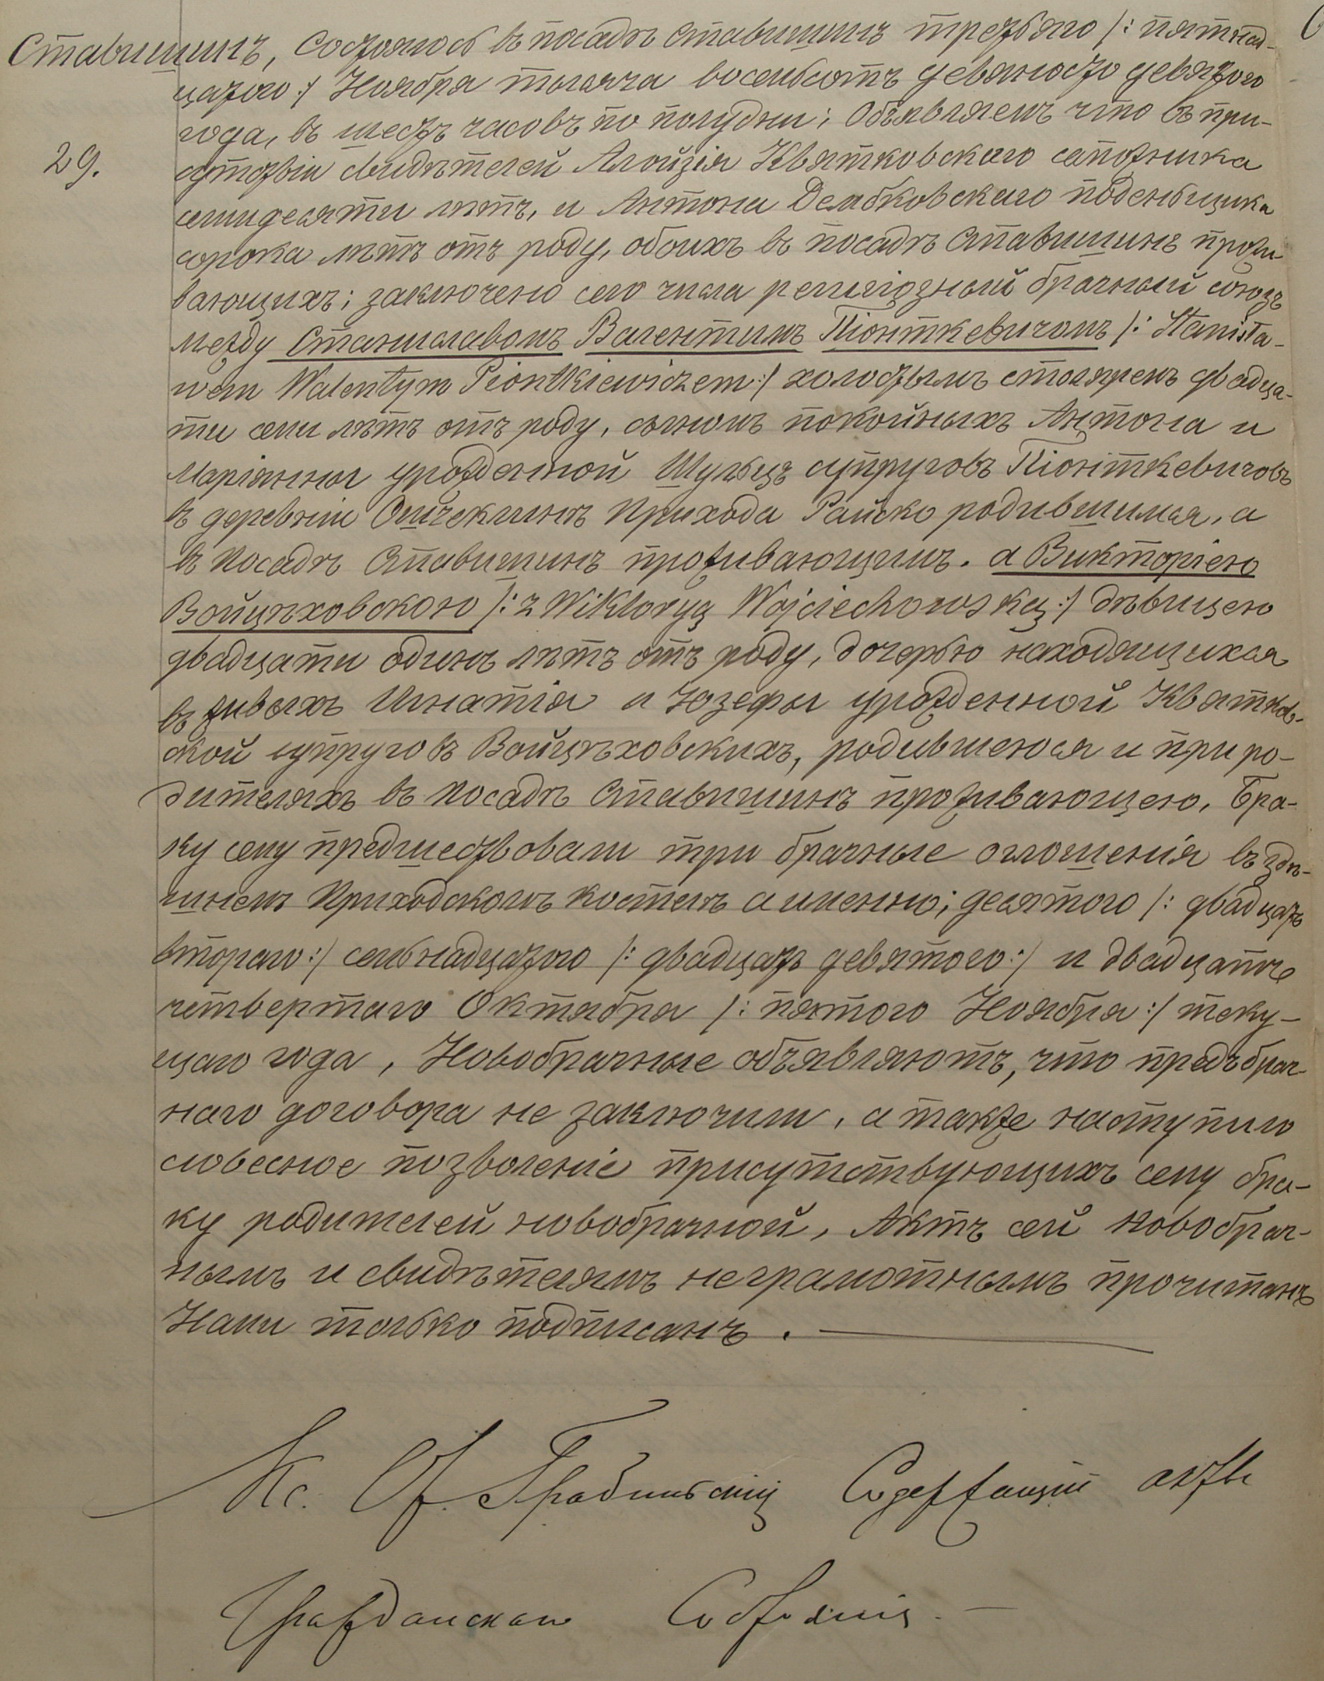 Ставишинъ, Состоялось въ посадѣ Ставишинѣ третьяго /: пятнад-
цатого :/ Ноября тысяча восемьсотъ девяносто девятого
года, въ шесть часовъ по полудни; Объявляемъ что въ при-
29. сутствіи свидѣтелей Алойзія Квятковскаго сапожника
семидесяти лѣтъ, и Антона Дембковскаго поденьщика
сорока лѣтъ отъ роду, обоихъ въ посадѣ Ставишинѣ прожи
вающихъ; заключено сего числа религіозный брачный союзъ
между Станиславомъ Валентимъ Піонткевичомъ /: Stanisła-
wem Walentym Piontkiewiczem :/ холостымъ столяремъ двадца-
ти семи лѣтъ отъ роду, сыномъ покойныхъ Антона и
Маріянны урожденной Шульцъ супруговъ Піонткевичовъ
въ деревніи Прихода Райско родившимся, а
въ посадѣ Ставишинѣ проживающимъ. а Викторіею
Войцѣховскою /: z Wiktoryą Wojciechowską :/ дѣвицею
двадцати одинъ лѣтъ отъ роду, дочерью находящихся
въ живыхъ Игнатія и Юзефы урожденной Квятков-
ской супруговъ Войцѣховскихъ, родившеюся и при ро-
дителяхъ въ посадѣ Ставишинѣ проживающею. Бра-
ку сему предшествовали три брачные оглошенія въ здѣ-
шнемъ Приходскомъ костелѣ а именно; десятого /: двадцать
второго :/ семьнадцатого /: двадцать девятого :/ и двадцать
четвертаго Октября /: пятого Ноября :/ теку-
щаго года, Новобрачные объявляютъ, что предъбрач
наго договора не заключили, а также наступило
словесное позволеніе присутствующихъ сему бра-
ку родителей новобрачной, Актъ сей новобрач-
нымъ и свидѣтелямъ неграмотнымъ прочитанъ
Нами только подписанъ.
Кс. Грабинскій Содержащій акты
Гражданскаго Состоянія.